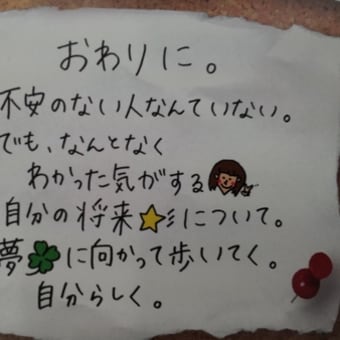 おわりに。
不安のない人なんていない。
でも、なんとなく
わかった気がする
自分の将来について。
夢に向かって歩いてく。
自分らしく。